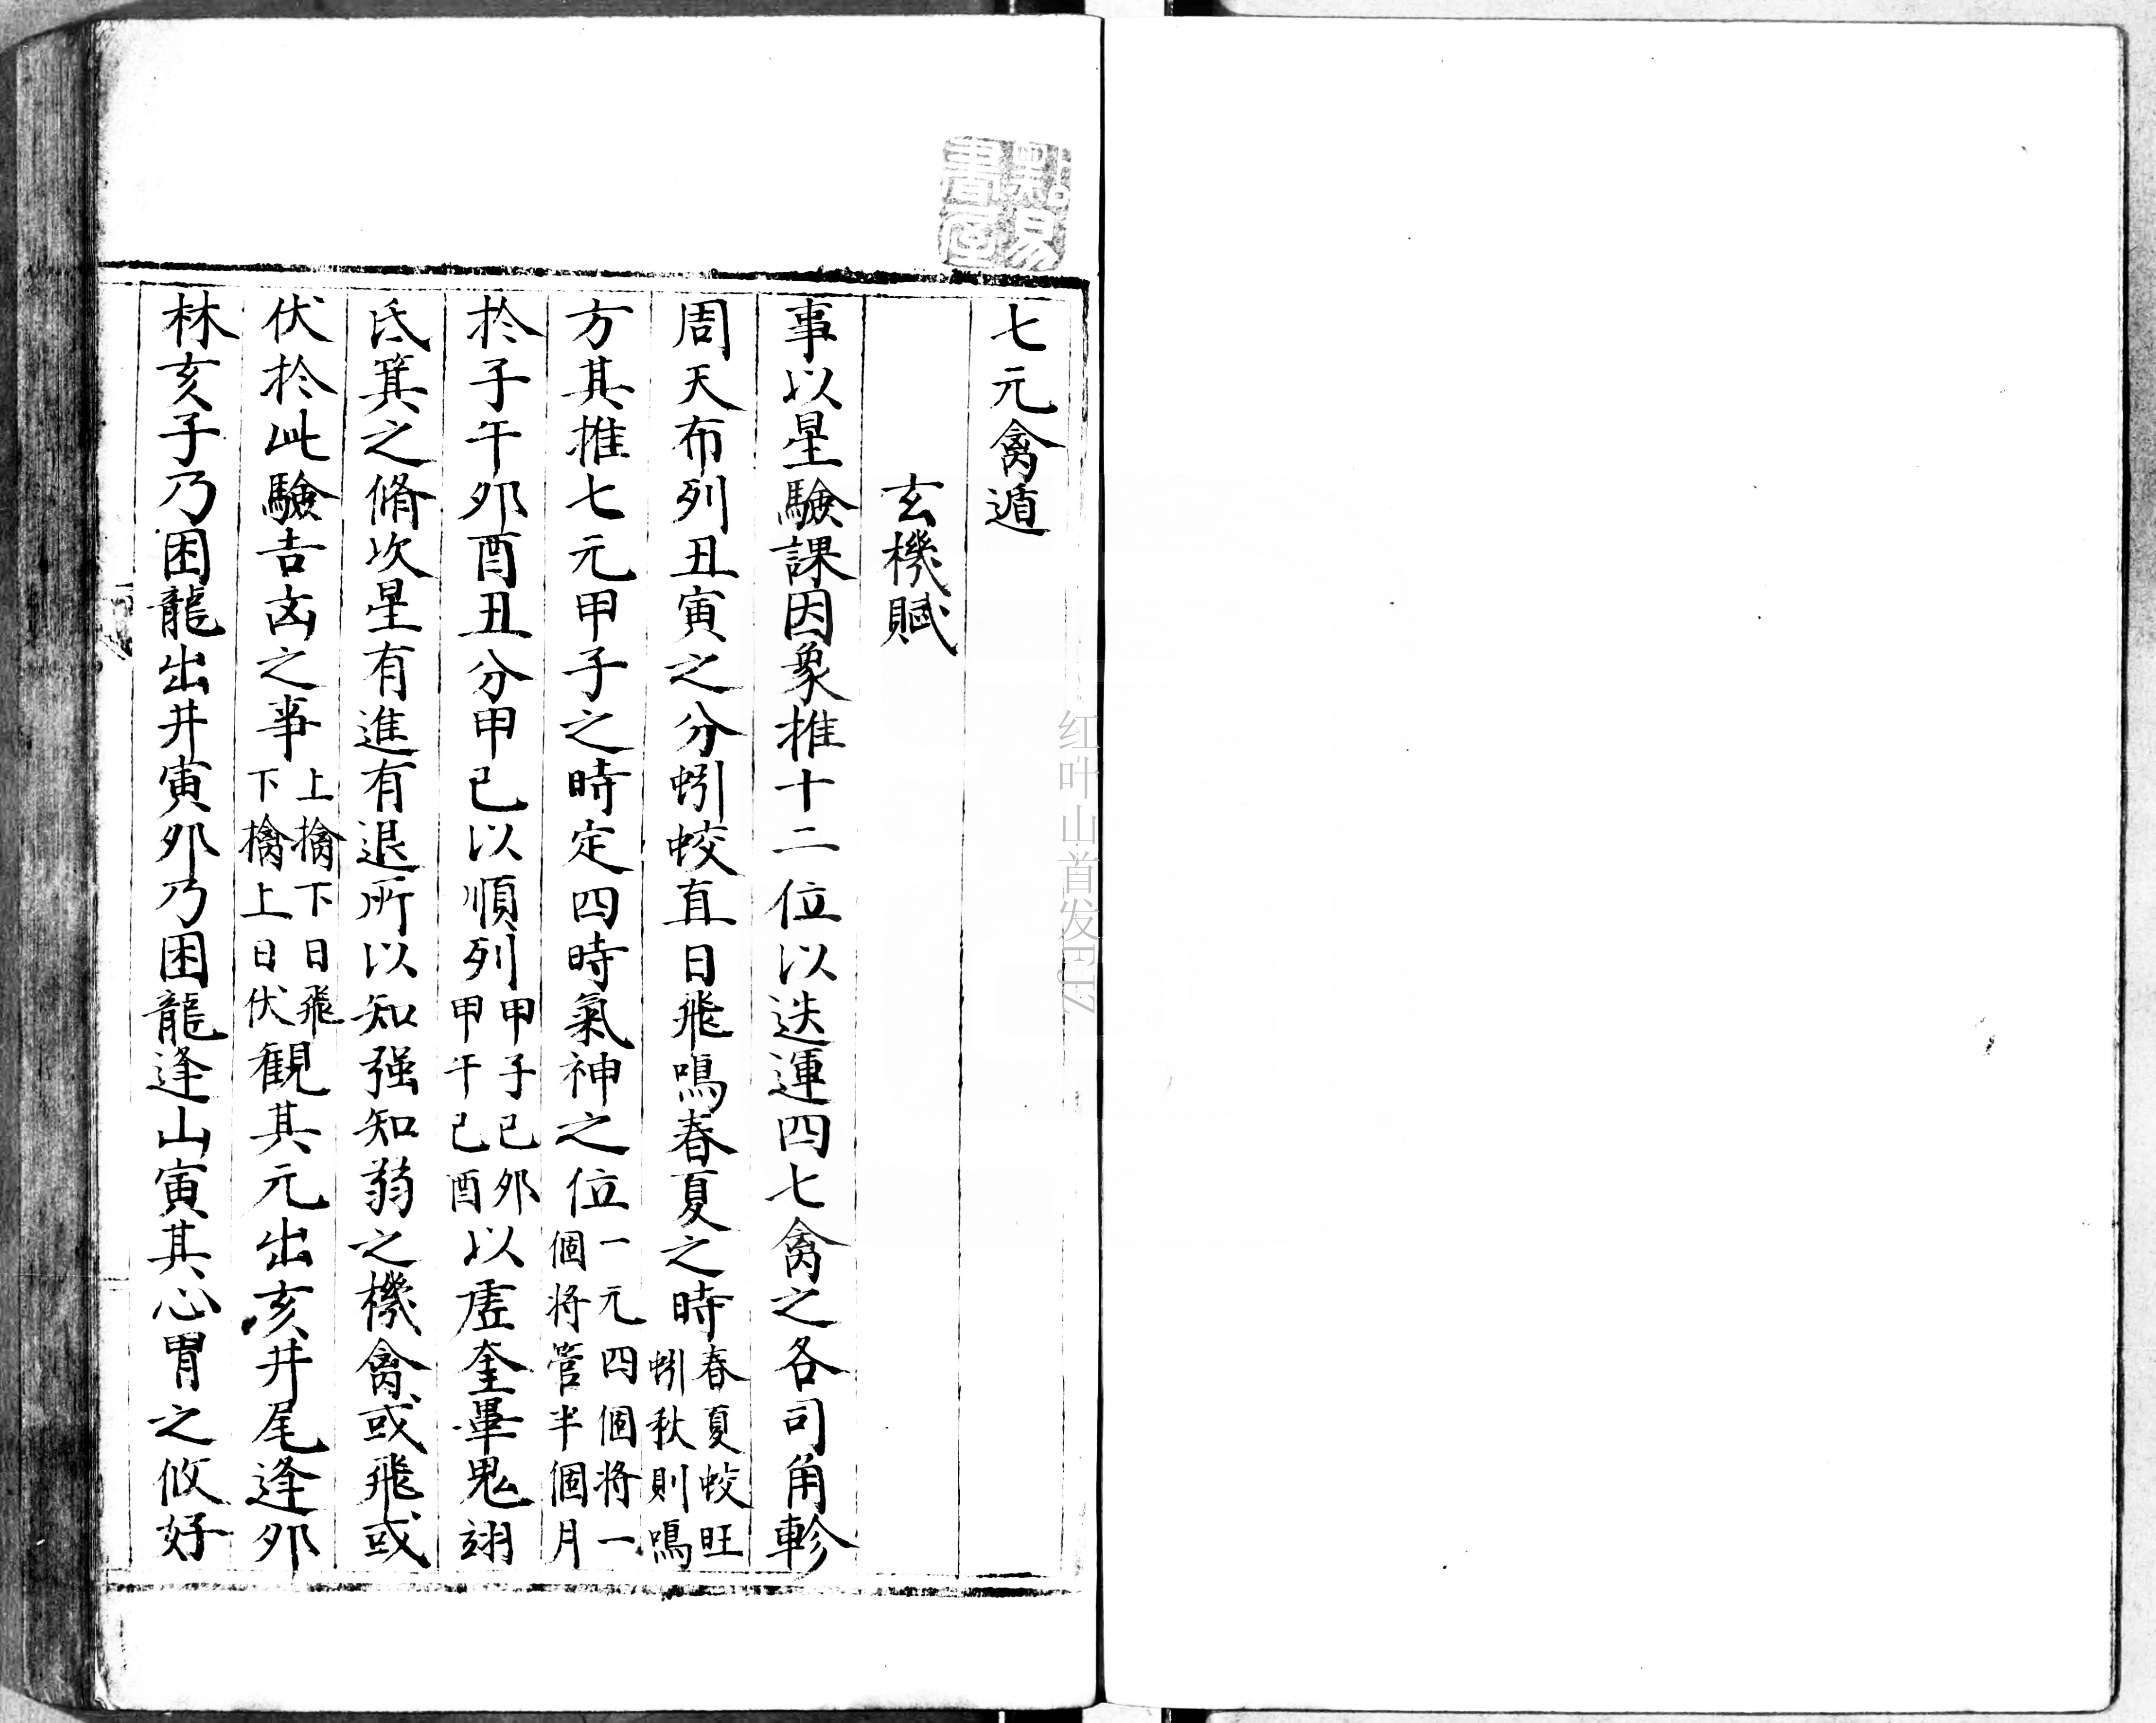 七元禽遁
玄機賦
事以星驗課因象推十二位以迭運四七禽之各司角軫
周天布列丑寅之分蚓蛟直日飛鳴春夏之時春夏蛟旺蚓秋則鳴
方其推七元甲子之時定四時氣神之位一元四個将一個将管半個月
扵子午夘酉丑分甲己以順列甲子己夘甲午己酉以虚奎畢鬼翊
氐箕之脩次星有進有退所以知强知弱之機禽或飛或
伏扵此驗吉凶之事上擒下日飛下擒上日伏觀其元出亥井尾逢夘
林亥子乃困龍出井寅夘乃困龍逢山寅其心胃之攸好
點易
書
红叶山首发FJZ